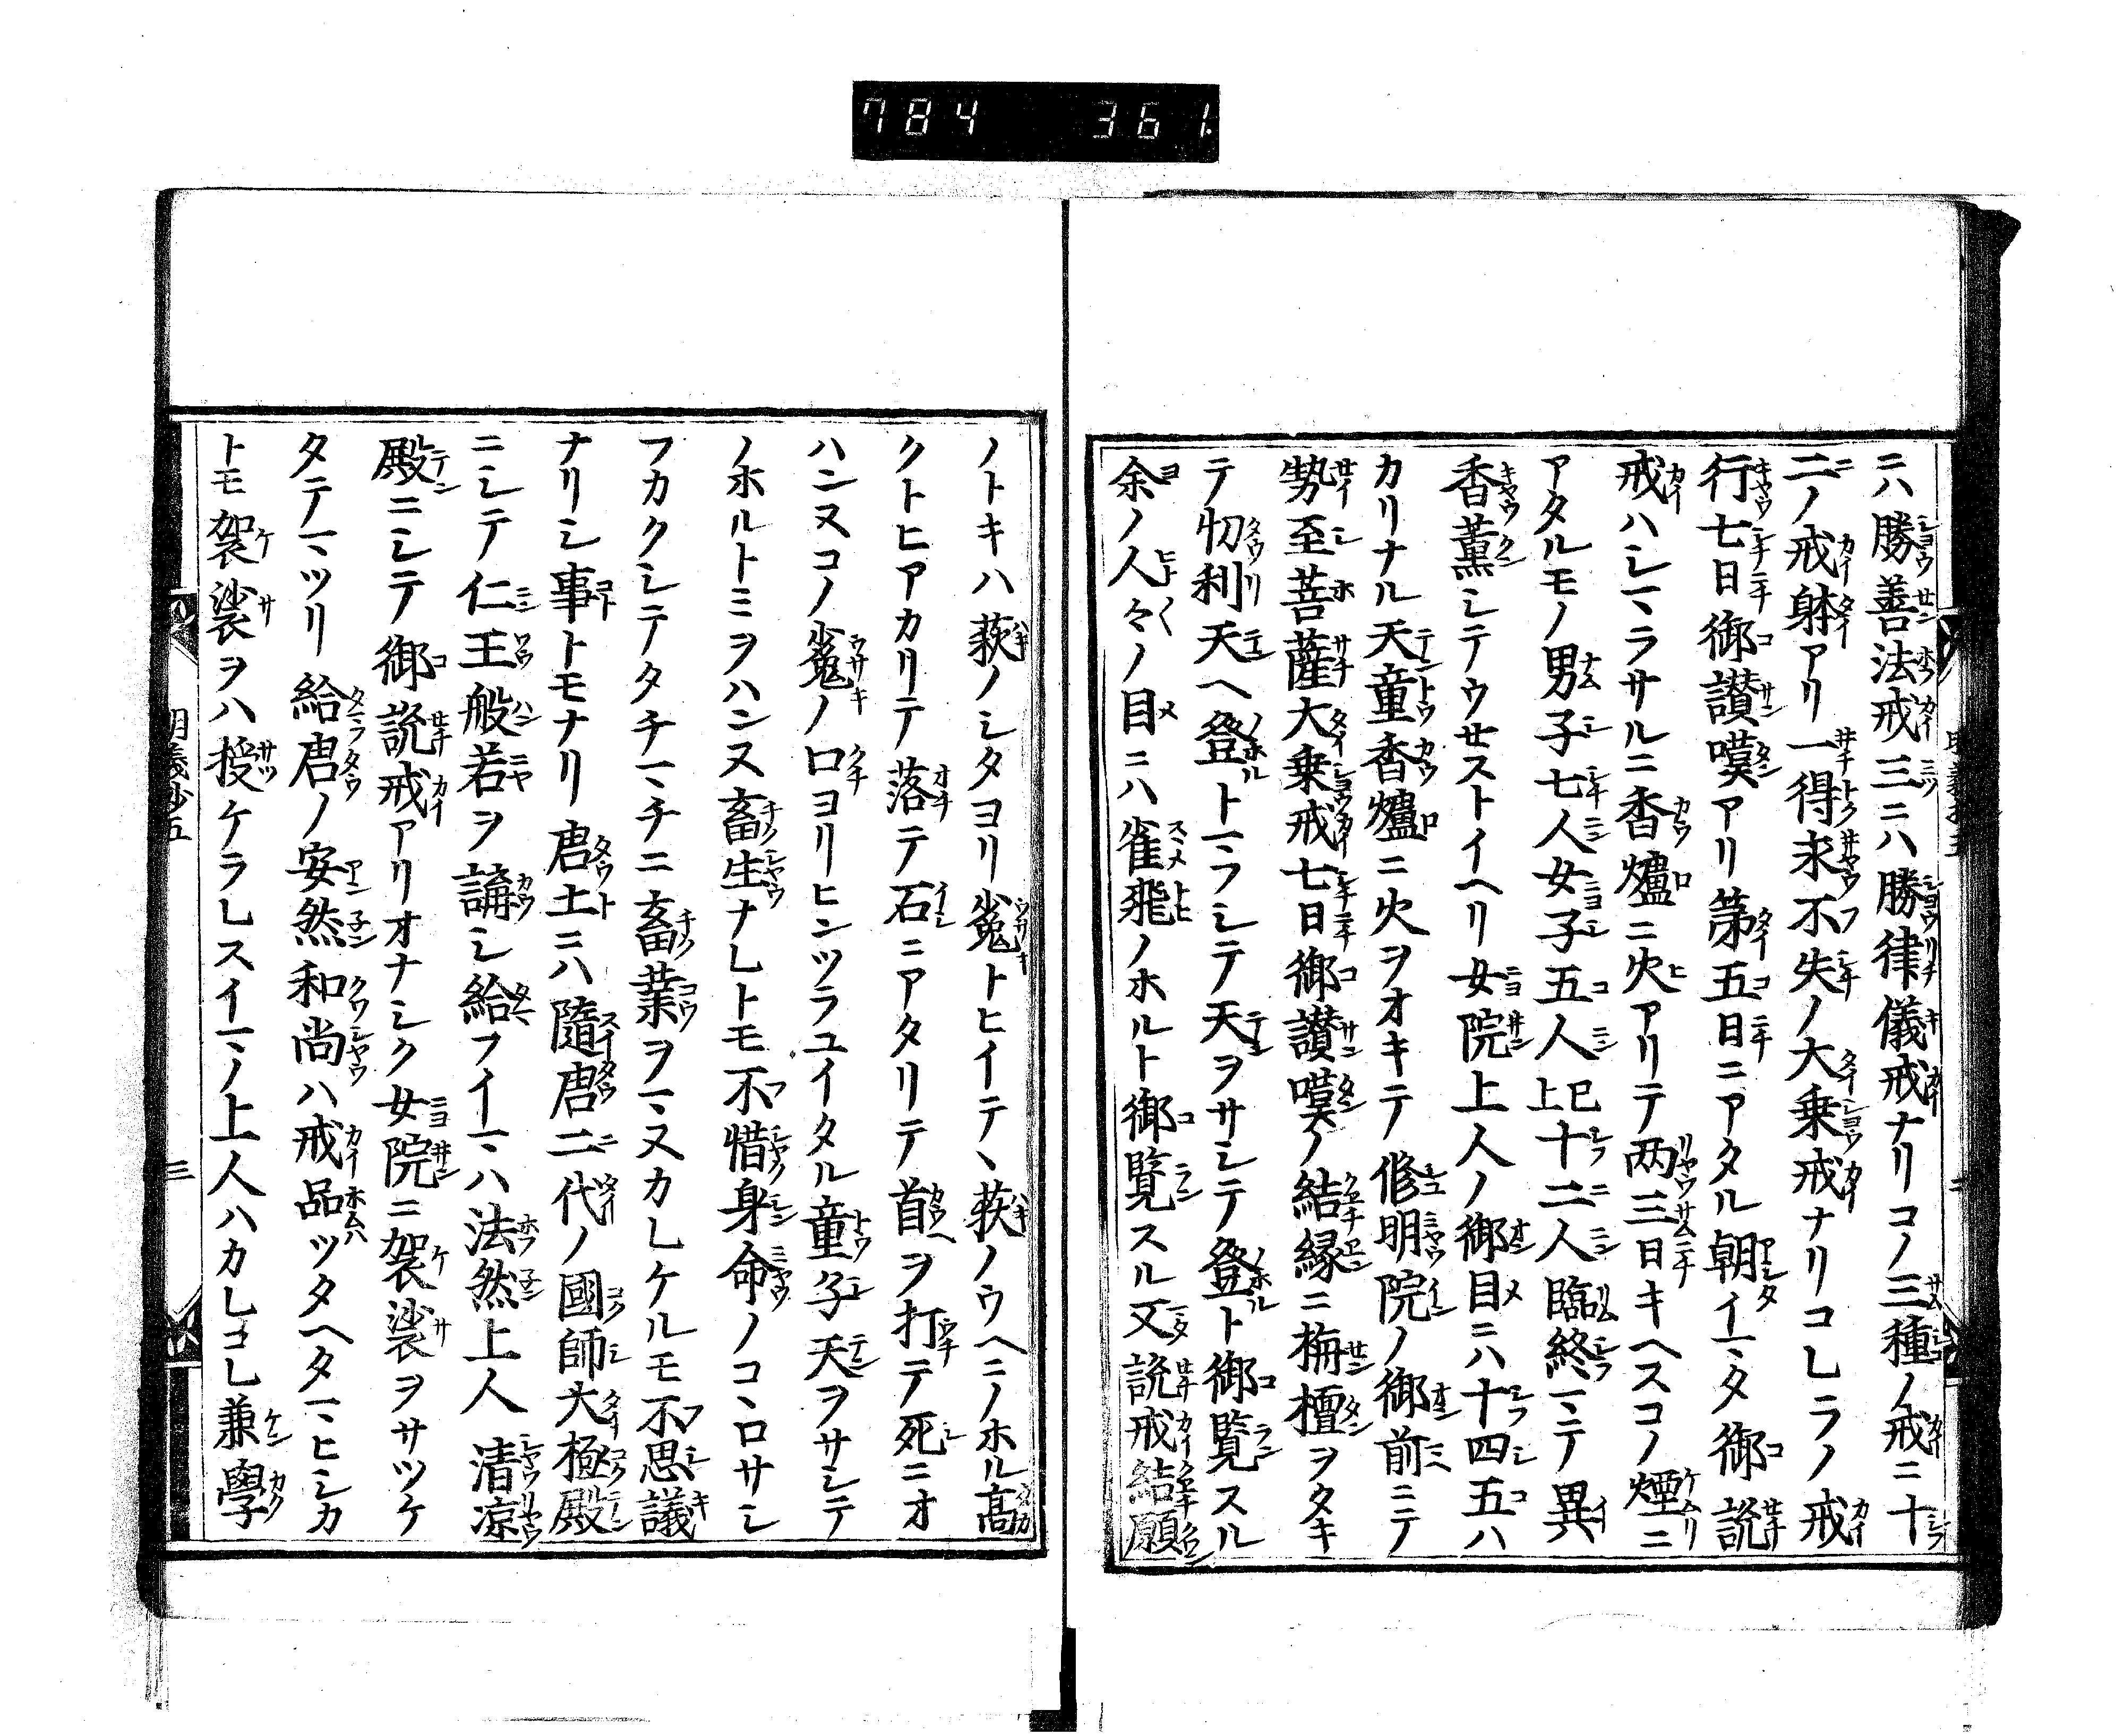 784 361
ニハ勝善法戒三ニハ勝律儀戒ナリコノ三種ノ戒ニ十
二ノ戒躰アリ一得求不失ノ大乗戒ナリコレラノ戒
行七日御讃嘆アリ第五日ニアタル朝イマタ御説
戒ハシマラサルニ香爐ニ火アリテ两三日キヘスコノ煙ニ
アタルモノ男子七人女子五人已上十二人臨終マテ異
香薫シテウセストイヘリ女院上人ノ御目ニハ十四五ハ
カリナル天童香爐ニ火ヲオキテ修明院ノ御前ニテ
勢至菩薩大乗戒七日御讃嘆ノ結縁ニ栴檀ヲタキ
テ忉利天ヘ登トマフシテ天ヲサシテ登ト御覧スル
余ノ人々ノ目ニハ雀飛ノホルト御覧スル又説戒結願
ノトキハ萩ノシタヨリ菟トヒイテヽ萩ノウヘニノホル高
クトヒアカリテ落テ石ニアタリテ首ヲ打テ死ニオ
ハンヌコノ菟ノ口ヨリヒンツラユイタル童子天ヲサシテ
ノホルトミヲハンヌ畜生ナレトモ不惜身命ノコヽロサシ
フカクシテタチマチニ畜業ヲマヌカレケルモ不思議
ナリシ事トモナリ唐土ニハ隨唐二代ノ國師大極殿
ニシテ仁王般若ヲ講シ給フイマハ法然上人 清凉
殿ニシテ御説戒アリオナシク女院ニ袈裟ヲサツケ
タテマツリ給唐ノ安然和尚ハ戒品ツタヘタマヒシカ
トモ袈裟ヲハ授ケラレスイマノ上人ハカレコレ兼學
明義抄五 三